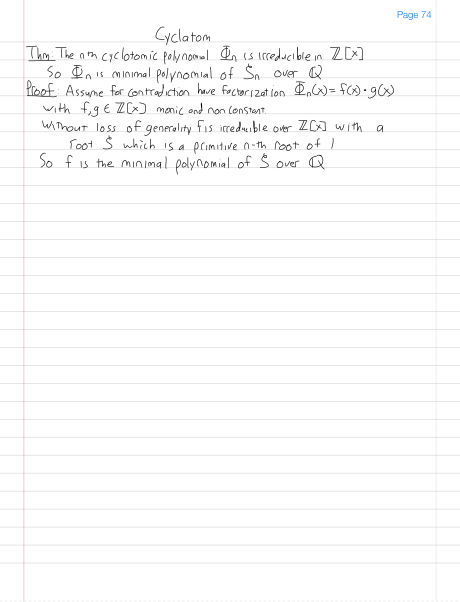 Page 74
Cyclatom
Thm: The nth cyclotomic polynomial Φₙ is irreducible in ℤ[x]
So Φₙ is minimal polynomial of ζₙ over ℚ
Proof: Assume for contradiction have factorization Φₙ(x) = f(x)·g(x)
with f,g ∈ ℤ[x] monic and non constant.
Without loss of generality f is irreducible over ℤ[x] with a
root ζ which is a primitive n-th root of 1
So f is the minimal polynomial of ζ over ℚ